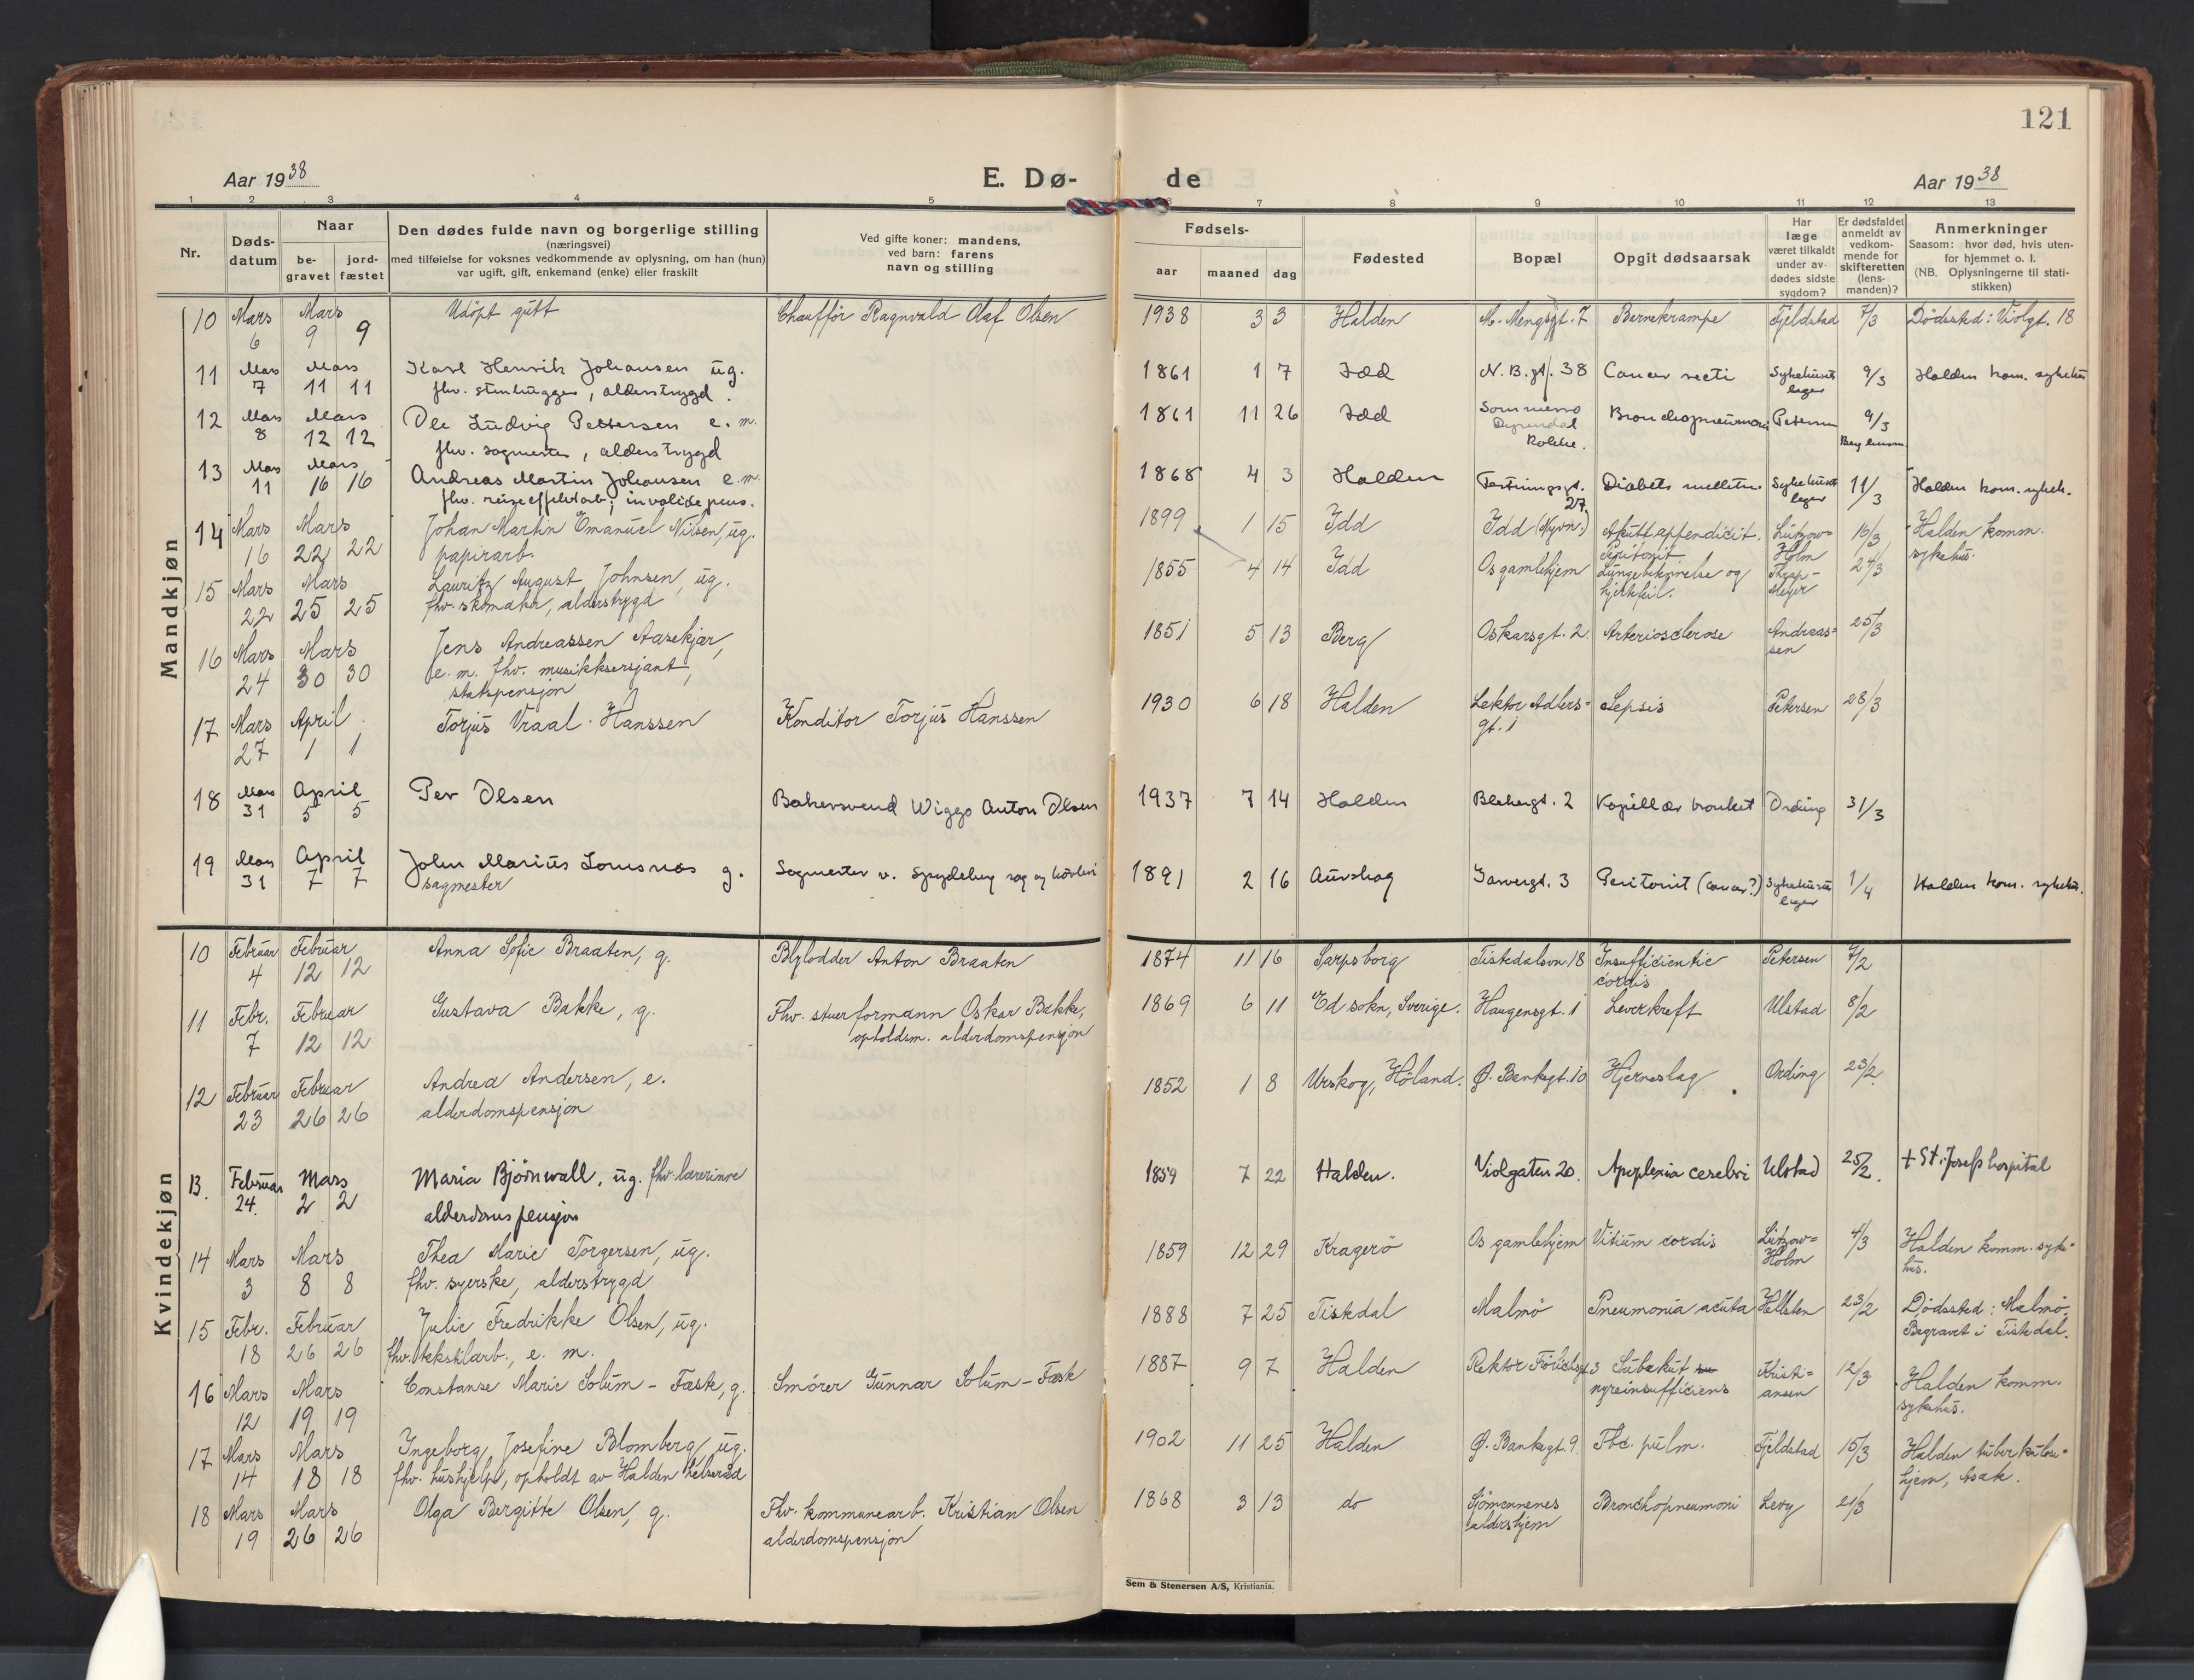 121
Aar 1938
E. Dø-
de
Aar 1938
1 2 3 4 5 6 7 8 9 10 11 12 13
Nr.
Døds-
datum
Naar
be-
gravet
jord-
fæstet
Den dødes fulde navn og borgerlige stilling
(næringsvei)
med tilføielse for voksnes vedkommende av oplysning, om han (hun)
var ugift, gift, enkemand (enke) eller fraskilt
Ved gifte koner: mandens,
ved barn: farens
navn og stilling
Fødsels-
aar maaned dag
Fødested
Bopæl
Opgit dødsaarsak
Har
læge
været tilkaldt
under av-
dødes sidste
sygdom?
Er dødsfaldet
anmeldt av
vedkom-
mende for
skifteretten
(lens-
manden)?
Anmerkninger
Saasom: hvor død, hvis uten-
for hjemmet o. l.
(NB. Oplysningerne til stati-
stikken)
Mandkjøn
10 Mars Mars Udöpt gutt Chaufför Ragnvald Olaf Olsen 1938 3 3 Halden M. Mengsgt. 7 Barnekrampe Fjeldstad 7/3 Dödssted: Violgt. 18
6 9 9
11 Mars Mars Karl Henrik Johansen ug. 1861 1 7 Idd N. B. gt. 38 Cancer recti Sykehusets 9/3 Halden kom. sykehus
7 11 11 fhv. stenhugger, alderstrygd. læger
12 Mars Mars Ole Ludvig Pettersen e. m. 1861 11 26 Idd Sommerro Bronchopneumoni Petersen 9/3
8 12 12 fhv. sagmester, alderstrygd Rokke. Berg lensm.
13 Mars Mars Andreas Martin Johansen e. m. 1868 4 3 Halden Festningsgt. Diabetes mellitus Sykehusets 11/3 Halden kom. sykeh.
11 16 16 fhv. reiseeffektarb; invalidepens. 27 læger
14 Mars Mars Johan Martin Emanuel Nilsen, ug. 1899 1 15 Idd Idd (Nyvn.) Akutt appendicit. Lützow= Halden komm.
16 22 22 papirarb. Peritonit Holm sykehus.
15 Mars Mars Lauritz August Johnsen, ug. 1855 4 14 Idd Os gamlehjem Lungebetennelse og 24/3
22 25 25 fhv. skomaker, alderstrygd hjertefeil. Meyer
16 Mars Mars Jens Andreassen Aasekjær, 1851 5 13 Berg Oskarsgt. 2. Arteriosclerose Andreas= 25/3
24 30 30 e. m. fhv. musikksersjant, sen
statspensjon
17 Mars April Torjus Vraal Hanssen Konditor Torjus Hanssen 1930 6 18 Halden Lektor Adlers= Sepsis Petersen 28/3
27 1 1 gt. 1
18 Mars April Per Olsen Bakersvend Wiggo Anton Olsen 1937 7 14 Halden Blekergt. 2 Kapillær bronkit Ording 31/3
31 5 5
19 Mars April John Marius Lomsnes g. Sagmester v. Spydeberg sag og høvleri 1891 2 16 Aurskog Garvergt. 3 Peritonit (cancer?) Sykehusets 1/4 Halden kom. sykehus.
31 7 7 sagmester læger
Kvindekjøn
10 Februar Februar Anna Sofie Braaten, g. Blylodder Anton Braaten 1874 11 16 Sarpsborg Tistedalsvn. 18 Insufficientie Petersen 7/2
4 12 12 cordis
11 Febr. Februar Gustava Bakke, g. Fhv. stuerformann Oskar Bakke, 1869 6 11 Ed sokn, Sverige. Haugensgt. 1 Leverkreft Ulstad 8/2
7 12 12 opholdsm. alderdomspensjon
12 Februar Februar Andrea Andersen, e. 1852 1 8 Urskog, Höland. Ø. Bankegt. 10 Hjerneslag Ording 23/2
23 26 26 alderdomspensjon
13. Februar Mars Maria Björnwall, ug. fhv. lærerinne 1854 7 22 Halden. Violgaten 20. Apoplexia cerebri Ulstad 25/2. + St. Josefs hospital
24. 2 2 alderdomspensjon
14 Mars Mars Thea Marie Torgersen, ug. 1859 12 29 Kragerö Os gamlehjem Vitium cordis Lützow= 4/3 Halden komm. syke=
3 8 8 fhv. syerske, alderstrygd Holm hus.
15 Febr. Februar Julie Fredrikke Olsen, ug. 1888 7 25 Tistedal Malmö Pneumonia acuta Hellsten 23/2 Dödssted: Malmö.
18 26 26 fhv. tekstilarb., e. m. Begravet i Tistedal.
16 Mars Mars Constanse Marie Solum - Fæsk, g. Smörer Gunnar Solum - Fæsk 1887 9 7 Halden Rektor Frölichsgt 3 Subakut Kristi= 12/3 Halden komm.
12 19 19 nyreinsufficiens ansen sykehus.
17 Mars Mars Ingeborg Josefine Blomberg, ug. 1902 11 25 Halden Ø. Bankegt. 9. Tbc. pulm. Fjeldstad 15/3 Halden tuberkulose=
14 18 18 fhv. hushjelp, opholdt av Halden helseråd hjem, Asak.
18 Mars Mars Olga Bergitte Olsen, g. Fhv. kommunearb. Kristian Olsen 1868 3 13 do Sjömennenes Bronchopneumoni Levy 21/3
19 26 26 alderdomspensjon aldershjem
Sem & Stenersen A/S, Kristiania.